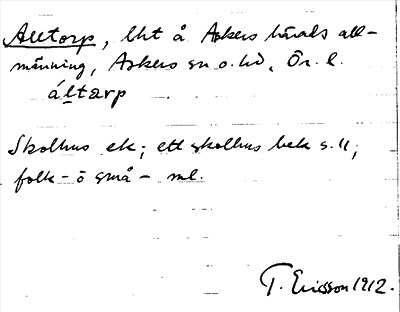 Alltorp, lht å Askers härads all-
männing, Askers sn o. hd, Ör. l.
áltarp
Skolhus ek; ett skolhus bek s. ll;
folk- o små- ml.
T. Ericsson 1912.